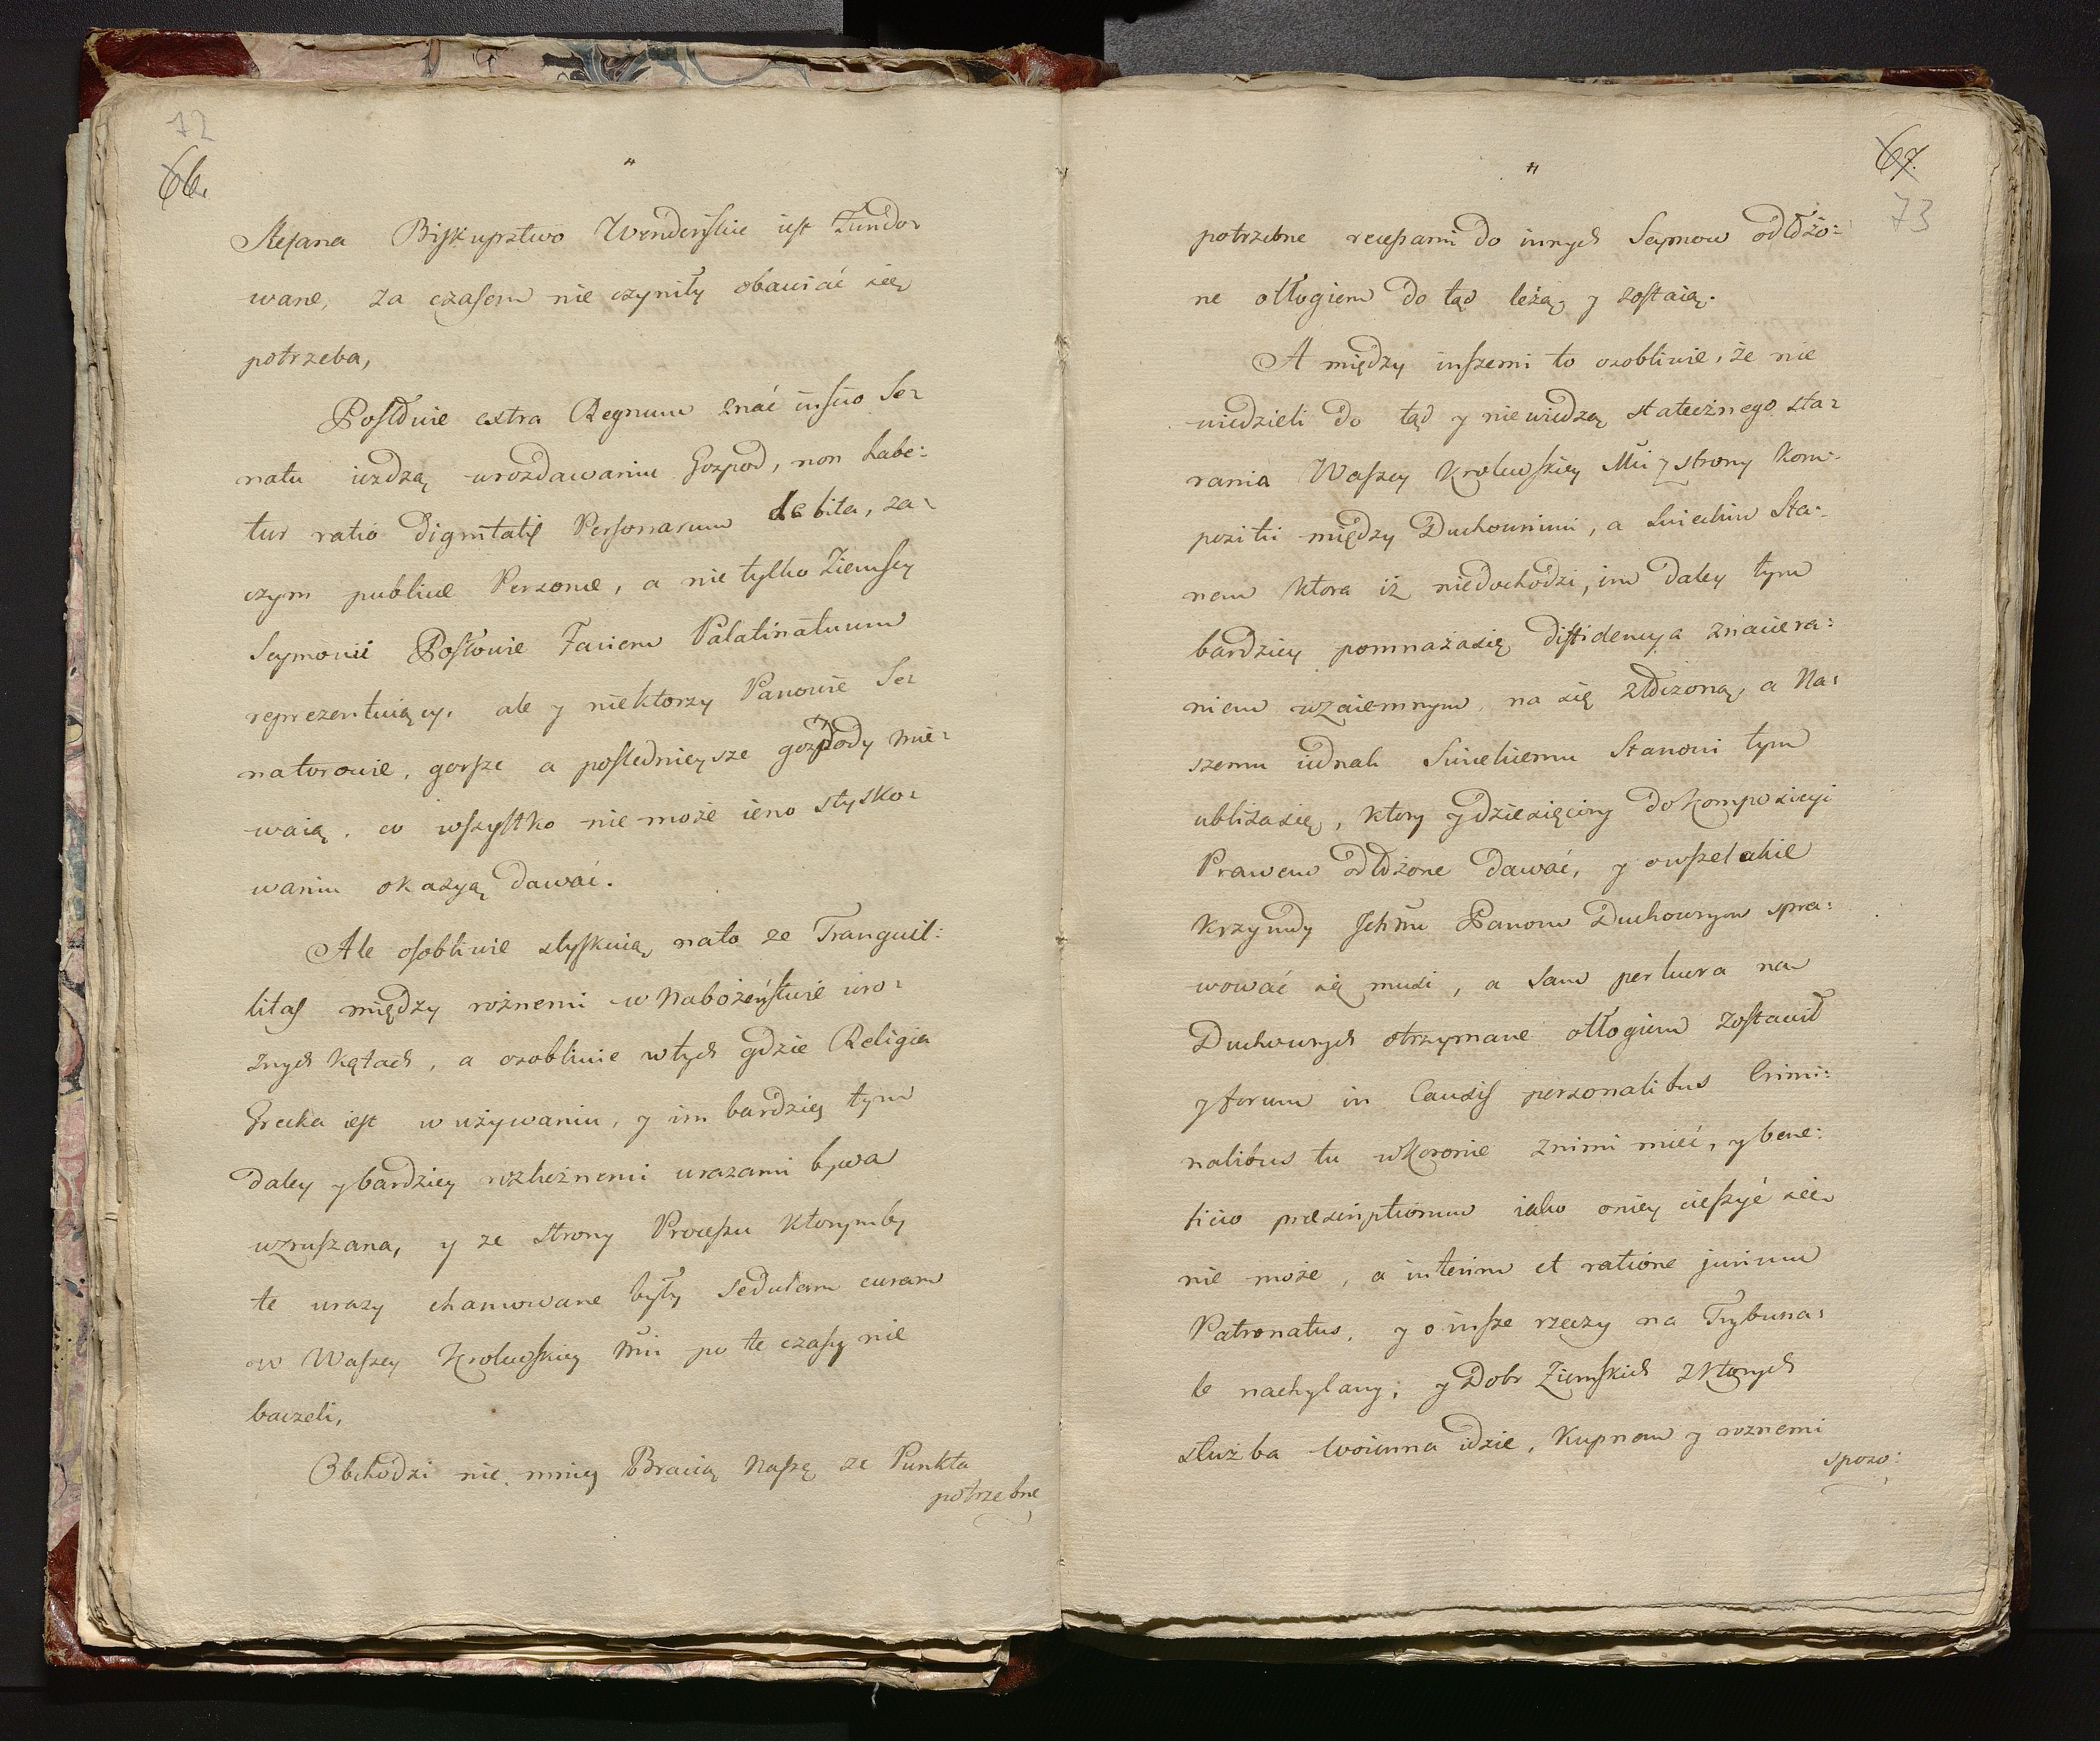 72
66.
"
Stefana Biskupstwo Wendenskie iest Fundo-
wane, za czasem nie czyniły obawiać się
potrzeba,
Posłowie extra Regnum znać inscio Se-
natu iezdzą w rozdawaniu Gospod, non habe:
tur ratio dignitatis Personarum debita, za-
czym publice Personæ, a nie tylko Ziemscy
Seymowii Posłowie Faciem Palatinatuum
reprezentuiący, ale y niektorzy Panowie Se-
natorowie, gorsze a posledniejsze gospody mie-
waią. co wszystko nie może ieno styskо-
waniu okazyą dawać.
Ale osobliwie styskuią nato ze Tranquil:
litas między rożnemi w Nabożeństwie w ro-
żnych kątach, a osobliwie w tych gdzie Religia
Grecka iest w używaniu, y im bardziey tym
daley y bardziey rozlicżnemi urazami bywa
wzruszana, y ze strony Processu ktorymby
te urazy chamowane były sedulam curam
w Waszey Krolewskiey Mci po te czasy nie
baczeli,
Obchodzi nie mniey Bracią Naszę ze Punkta
potrzebne
67.
73
"
potrzebne recessami do innych Seymow odłożo:
ne odłogiem do tąd leżą, y zostaią.
A między inszemi to osobliwie, że nie
wiedzieli do tąd y nie wiedzą statecżnego sta-
rania Waszey Krolewskiey Mci z strony kom-
pozitii między Duchownimi, a Swieckim Sta-
nem ktora iż niedochodzi, im daley tym
bardziey pomnażasię diffidencya znaciera:
niem wzaiemnym na się złączoną, a Na-
szemu iednak Swieckiemu Stanowi tym
ubliżasię, ktory y dziesięciny do kompozicyi
Prawem odłożone dawać, y o wszelakie
krzywdy Ichmc Panom Duchownym spra:
wować się musi, a sam per lucra na
Duchownych otrzymane odłogiem zostawił
y forum in Causis personalibus Crimi:
nalibus tu w Koronie znimi mieć, y bene:
ficio præscriptionum iako oniey cieszyć się
nie może, a interim et ratione jurium
Patronatus, y o insze rzeczy na Trybuna-
le nachylany; y Dobr Ziemskich z ktorych
służba woienna idzie, kupnem y roznemi
sposo: